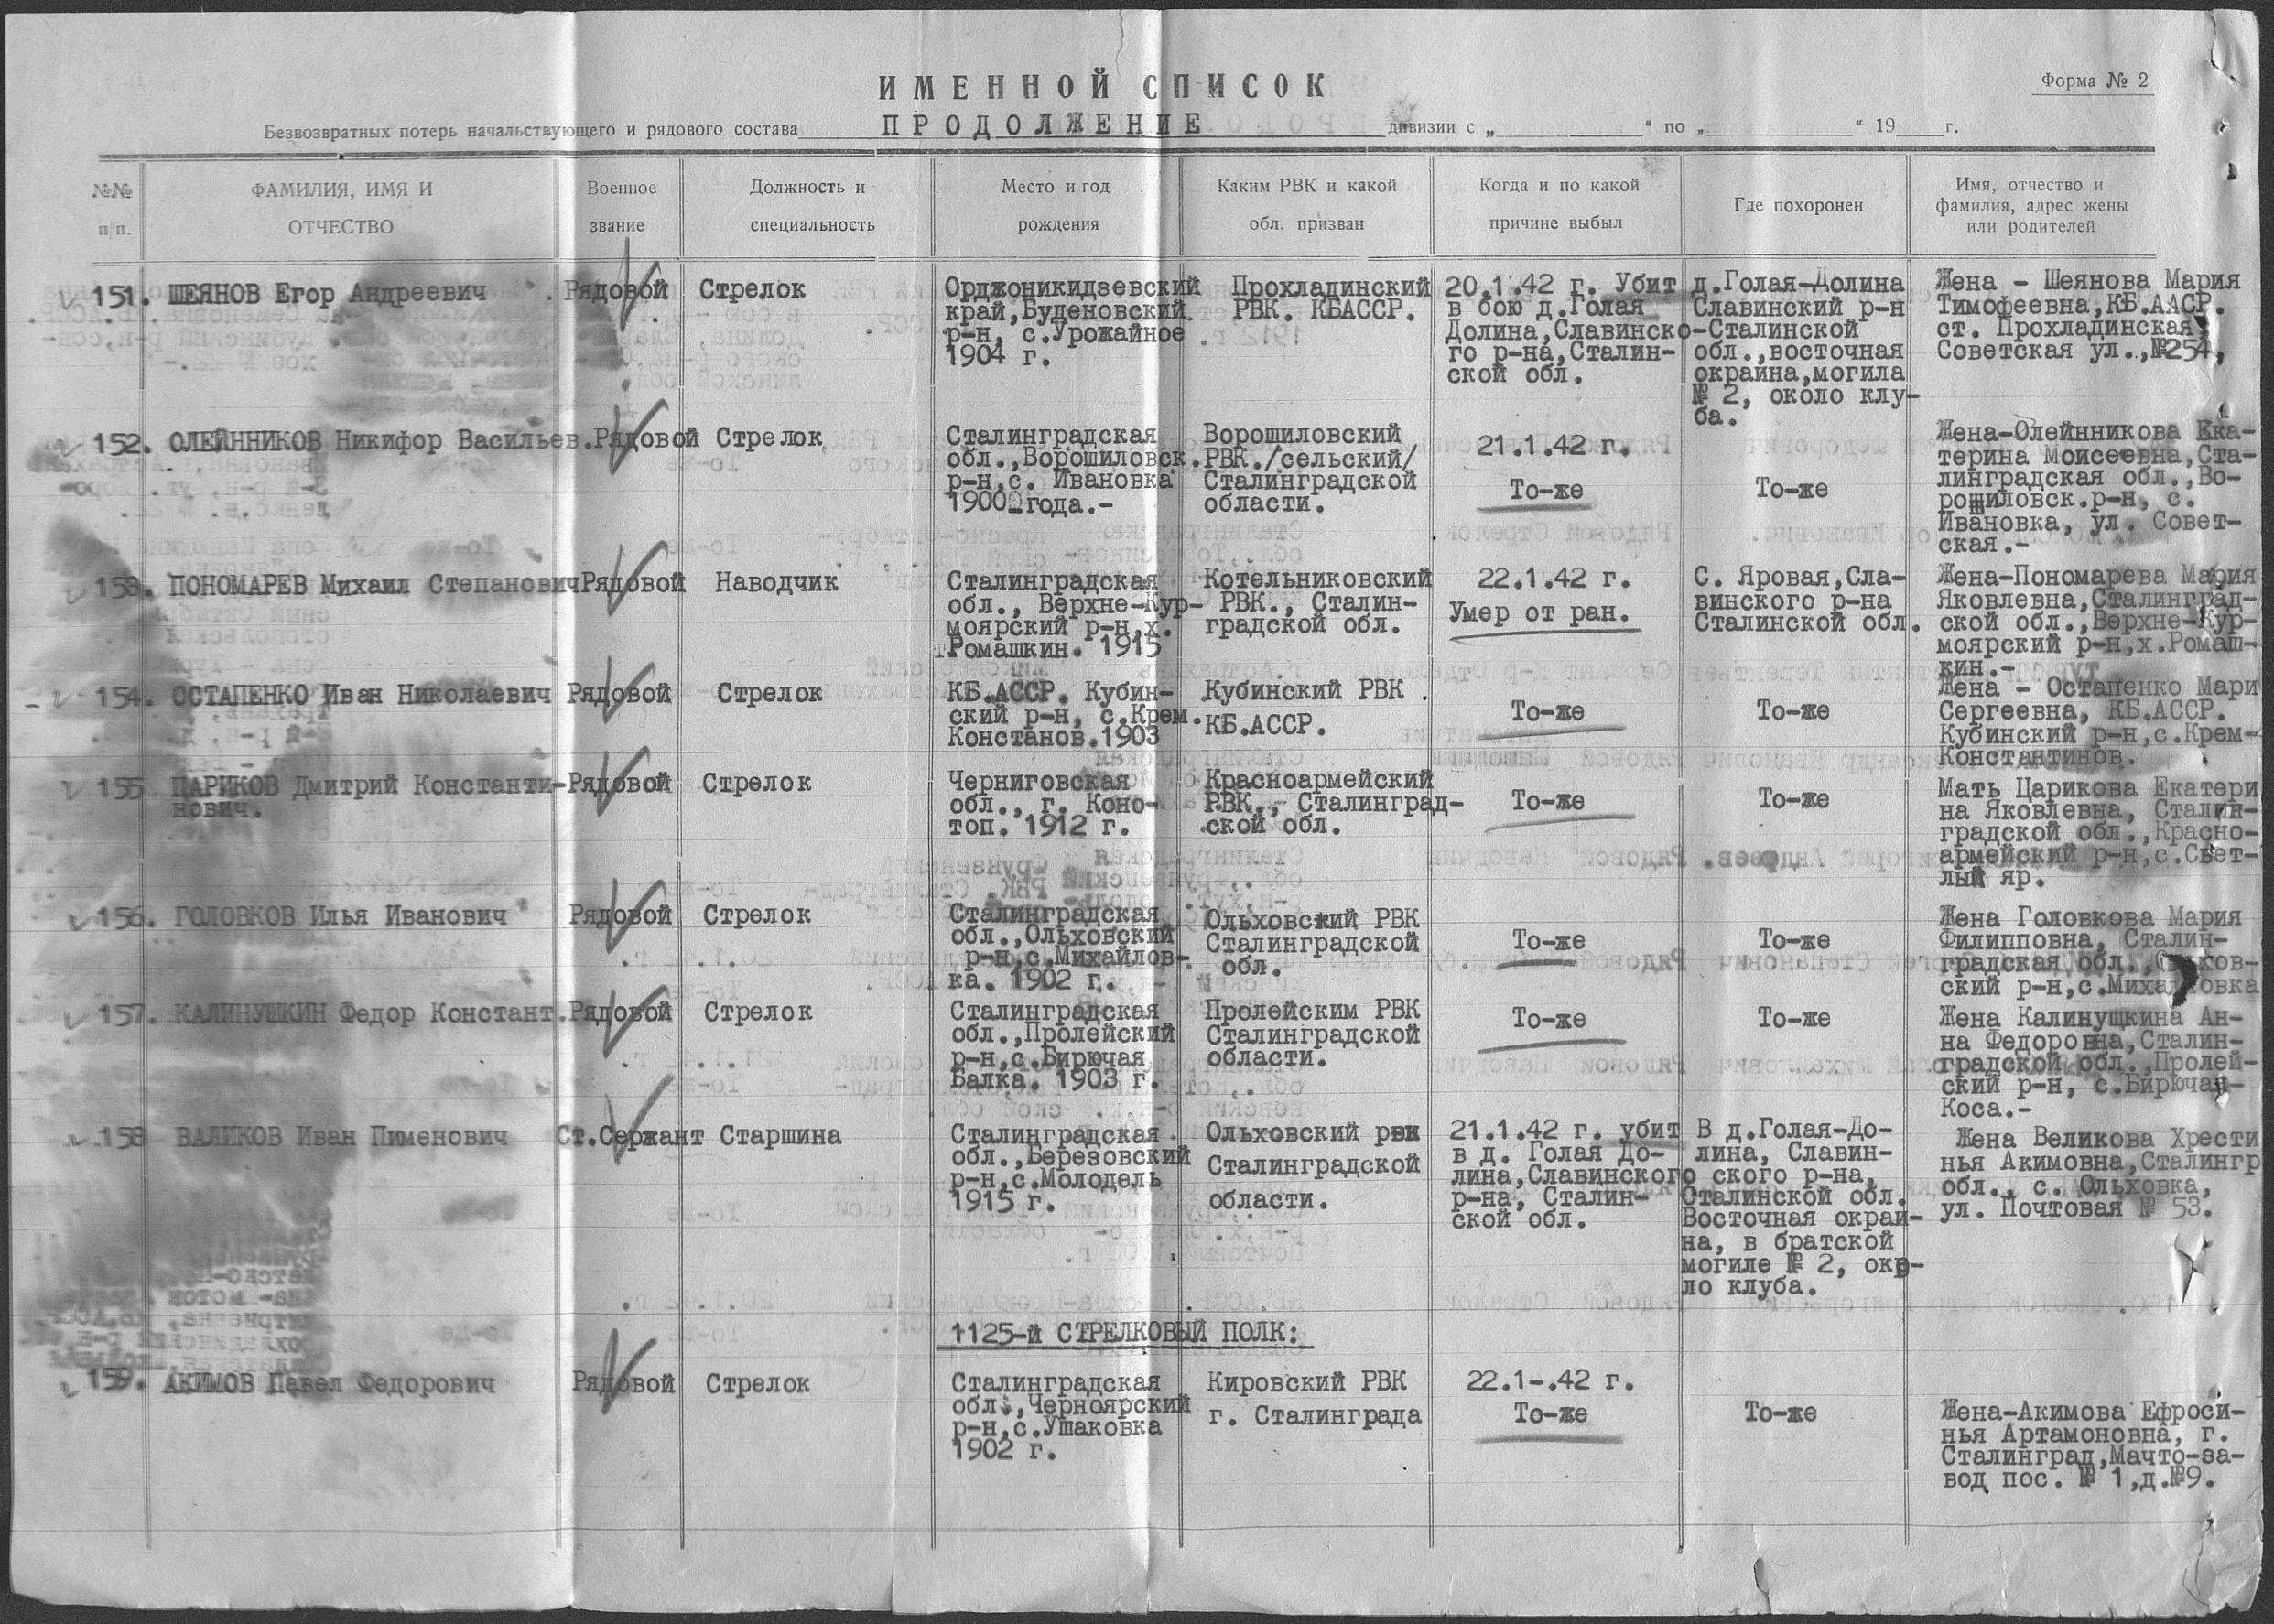 ИМЕННОЙ СПИСОК
Форма № 2
Безвозвратных потерь начальствующего и рядового состава ПРОДОЛЖЕНИЕ дивизии с „ “ по „ “ 19 г.
№№ п/п.
ФАМИЛИЯ, ИМЯ И
ОТЧЕСТВО
Военное
звание
Должность и
специальность
Место и год
рождения
Каким РВК и какой
обл. призван
Когда и по какой
причине выбыл
Где похоронен
Имя, отчество и
фамилия, адрес жены
или родителей
151. ШЕЯНОВ Егор Андреевич
Рядовой
Стрелок
Орджоникидзевский
край,Буденовский
р-н, с.Урожайное
1904 г.
Прохладинский
РВК. КБАССР.
20.1.42 г. Убит
в бою д.Голая
Долина,Славинско-
го р-на,Сталин-
ской обл.
д.Голая-Долина
Славинский р-н
Сталинской
обл.,восточная
окраина,могила
№ 2, около клу-
ба.
Жена - Шеянова Мария
Тимофеевна,КБ.ААСР.
ст. Прохладинская
Советская ул.,№254,
152. ОЛЕЙННИКОВ Никифор Васильев.
Рядовой
Стрелок
Сталинградская
обл.,Ворошиловск.
р-н,с. Ивановка
1900 года.-
Ворошиловский
РВК./сельский/
Сталинградской
области.
21.1.42 г.
То-же
То-же
Жена-Олейнникова Ека-
терина Моисеевна,Ста-
линградская обл.,Во-
рошиловск.р-н, с.
Ивановка, ул. Совет-
ская.-
153. ПОНОМАРЕВ Михаил Степанович
Рядовой
Наводчик
Сталинградская
обл., Верхне-Кур-
моярский р-н,х.
Ромашкин. 1915
Котельниковский
РВК., Сталин-
градской обл.
22.1.42 г.
Умер от ран.
С. Яровая,Сла-
винского р-на
Сталинской обл.
Жена-Пономарева Мария
Яковлевна,Сталинград-
ской обл.,Верхне-Кур-
моярский р-н,х.Ромаш-
кин.-
154. ОСТАПЕНКО Иван Николаевич
Рядовой
Стрелок
КБ.АССР. Кубин-
ский р-н, с.Крем.
Констанов.1903
Кубинский РВК .
КБ.АССР.
То-же
То-же
Жена - Остапенко Мари
Сергеевна, КБ.АССР.
Кубинский р-н,с.Крем-
Константинов.
155 ЦАРИКОВ Дмитрий Константи-
нович.
Рядовой
Стрелок
Черниговская
обл., г. Коно-
топ. 1912 г.
Красноармейский
РВК., Сталинград-
ской обл.
То-же
То-же
Мать Царикова Екатери
на Яковлевна, Сталин-
градской обл.,Красно-
армейский р-н,с.Свет-
лый яр.
156. ГОЛОВКОВ Илья Иванович
Рядовой
Стрелок
Сталинградская
обл.,Ольховский
р-н,с.Михайлов-
ка. 1902 г.
Ольховский РВК
Сталинградской
обл.
То-же
То-же
Жена Головкова Мария
Филипповна, Сталин-
градская обл.,
ский р-н,с.
157. КАЛИНУШКИН Федор Констант.
Рядовой
Стрелок
Сталинградская
обл.,Пролейский
р-н,с.Бирючая
Балка. 1903 г.
Пролейским РВК
Сталинградской
области.
То-же
То-же
Жена Калинущкина Ан-
на Федоровна,Сталин-
градской обл.,Пролей-
ский р-н, с.Бирючая-
Коса.-
158 ВАЛИКОВ Иван Пименович
Ст.Сержант
Старшина
Сталинградская
обл.,Березовский
р-н,с.Молодель
1915 г.
Ольховский рвк
Сталинградской
области.
21.1.42 г. убит
в д. Голая До-
лина,Славинского
р-на, Сталин-
ской обл.
В д.Голая-До-
лина, Славин-
ского р-на,
Сталинской обл.
Восточная окраи-
на, в братской
могиле № 2, око-
ло клуба.
Жена Великова Хрести
нья Акимовна,Сталингр
обл., с. Ольховка,
ул. Почтовая № 53.
1125-й СТРЕЛКОВЫЙ ПОЛК:
159. АКИМОВ Павел Федорович
Рядовой
Стрелок
Сталинградская
обл.,Черноярский
р-н,с.Ушаковка
1902 г.
Кировский РВК
г. Сталинграда
22.1-.42 г.
То-же
То-же
Жена-Акимова Ефроси-
нья Артамоновна, г.
Сталинград,Мачто-за-
вод пос. № 1,д.№9.